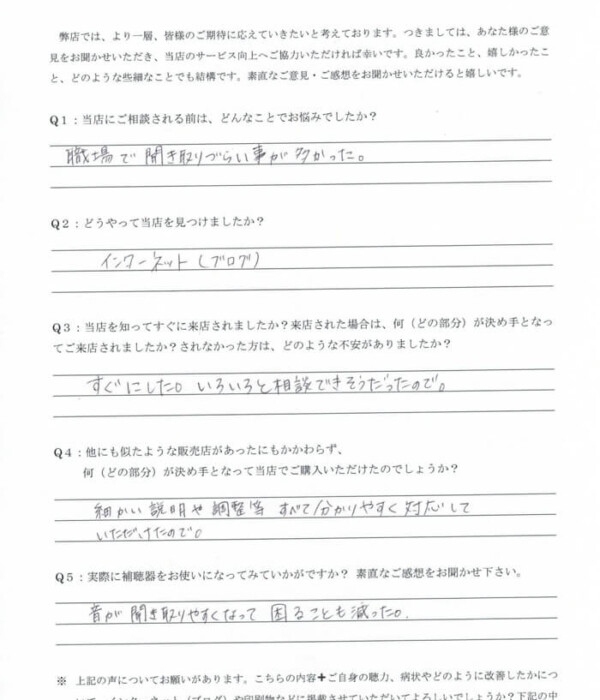 弊店では、より一層、皆様のご期待に応えていきたいと考えております。つきましては、あなた様のご意
見をお聞かせいただき、当店のサービス向上へご協力いただければ幸いです。良かったこと、嬉しかったこ
と、どのような些細なことでも結構です。素直なご意見・ご感想をお聞かせいただけると嬉しいです。
Q1：当店にご相談される前は、どんなことでお悩みでしたか？
職場で聞き取りづらい事が多かった。
Q2：どうやって当店を見つけましたか？
インターネット(ブログ)
Q3：当店を知ってすぐに来店されましたか？来店された場合は、何（どの部分）が決め手となっ
てご来店されましたか？されなかった方は、どのような不安がありましたか？
すぐにした。いろいろと相談できそうだったので。
Q4：他にも似たような販売店があったにもかかわらず、
何（どの部分）が決め手となって当店でご購入いただけたのでしょうか？
細かい説明や調整等すべて分かりやすく対応して
いただけたので。
Q5：実際に補聴器をお使いになってみていかがですか？ 素直なご感想をお聞かせ下さい。
音が聞き取りやすくなって困ることも減った。
※ 上記の声についてお願いがあります。こちらの内容＋ご自身の聴力、病状やどのように改善したかにつ
いて、インターネット（ブログ）や印刷物などに掲載させていただいてよろしいでしょうか？下記の中